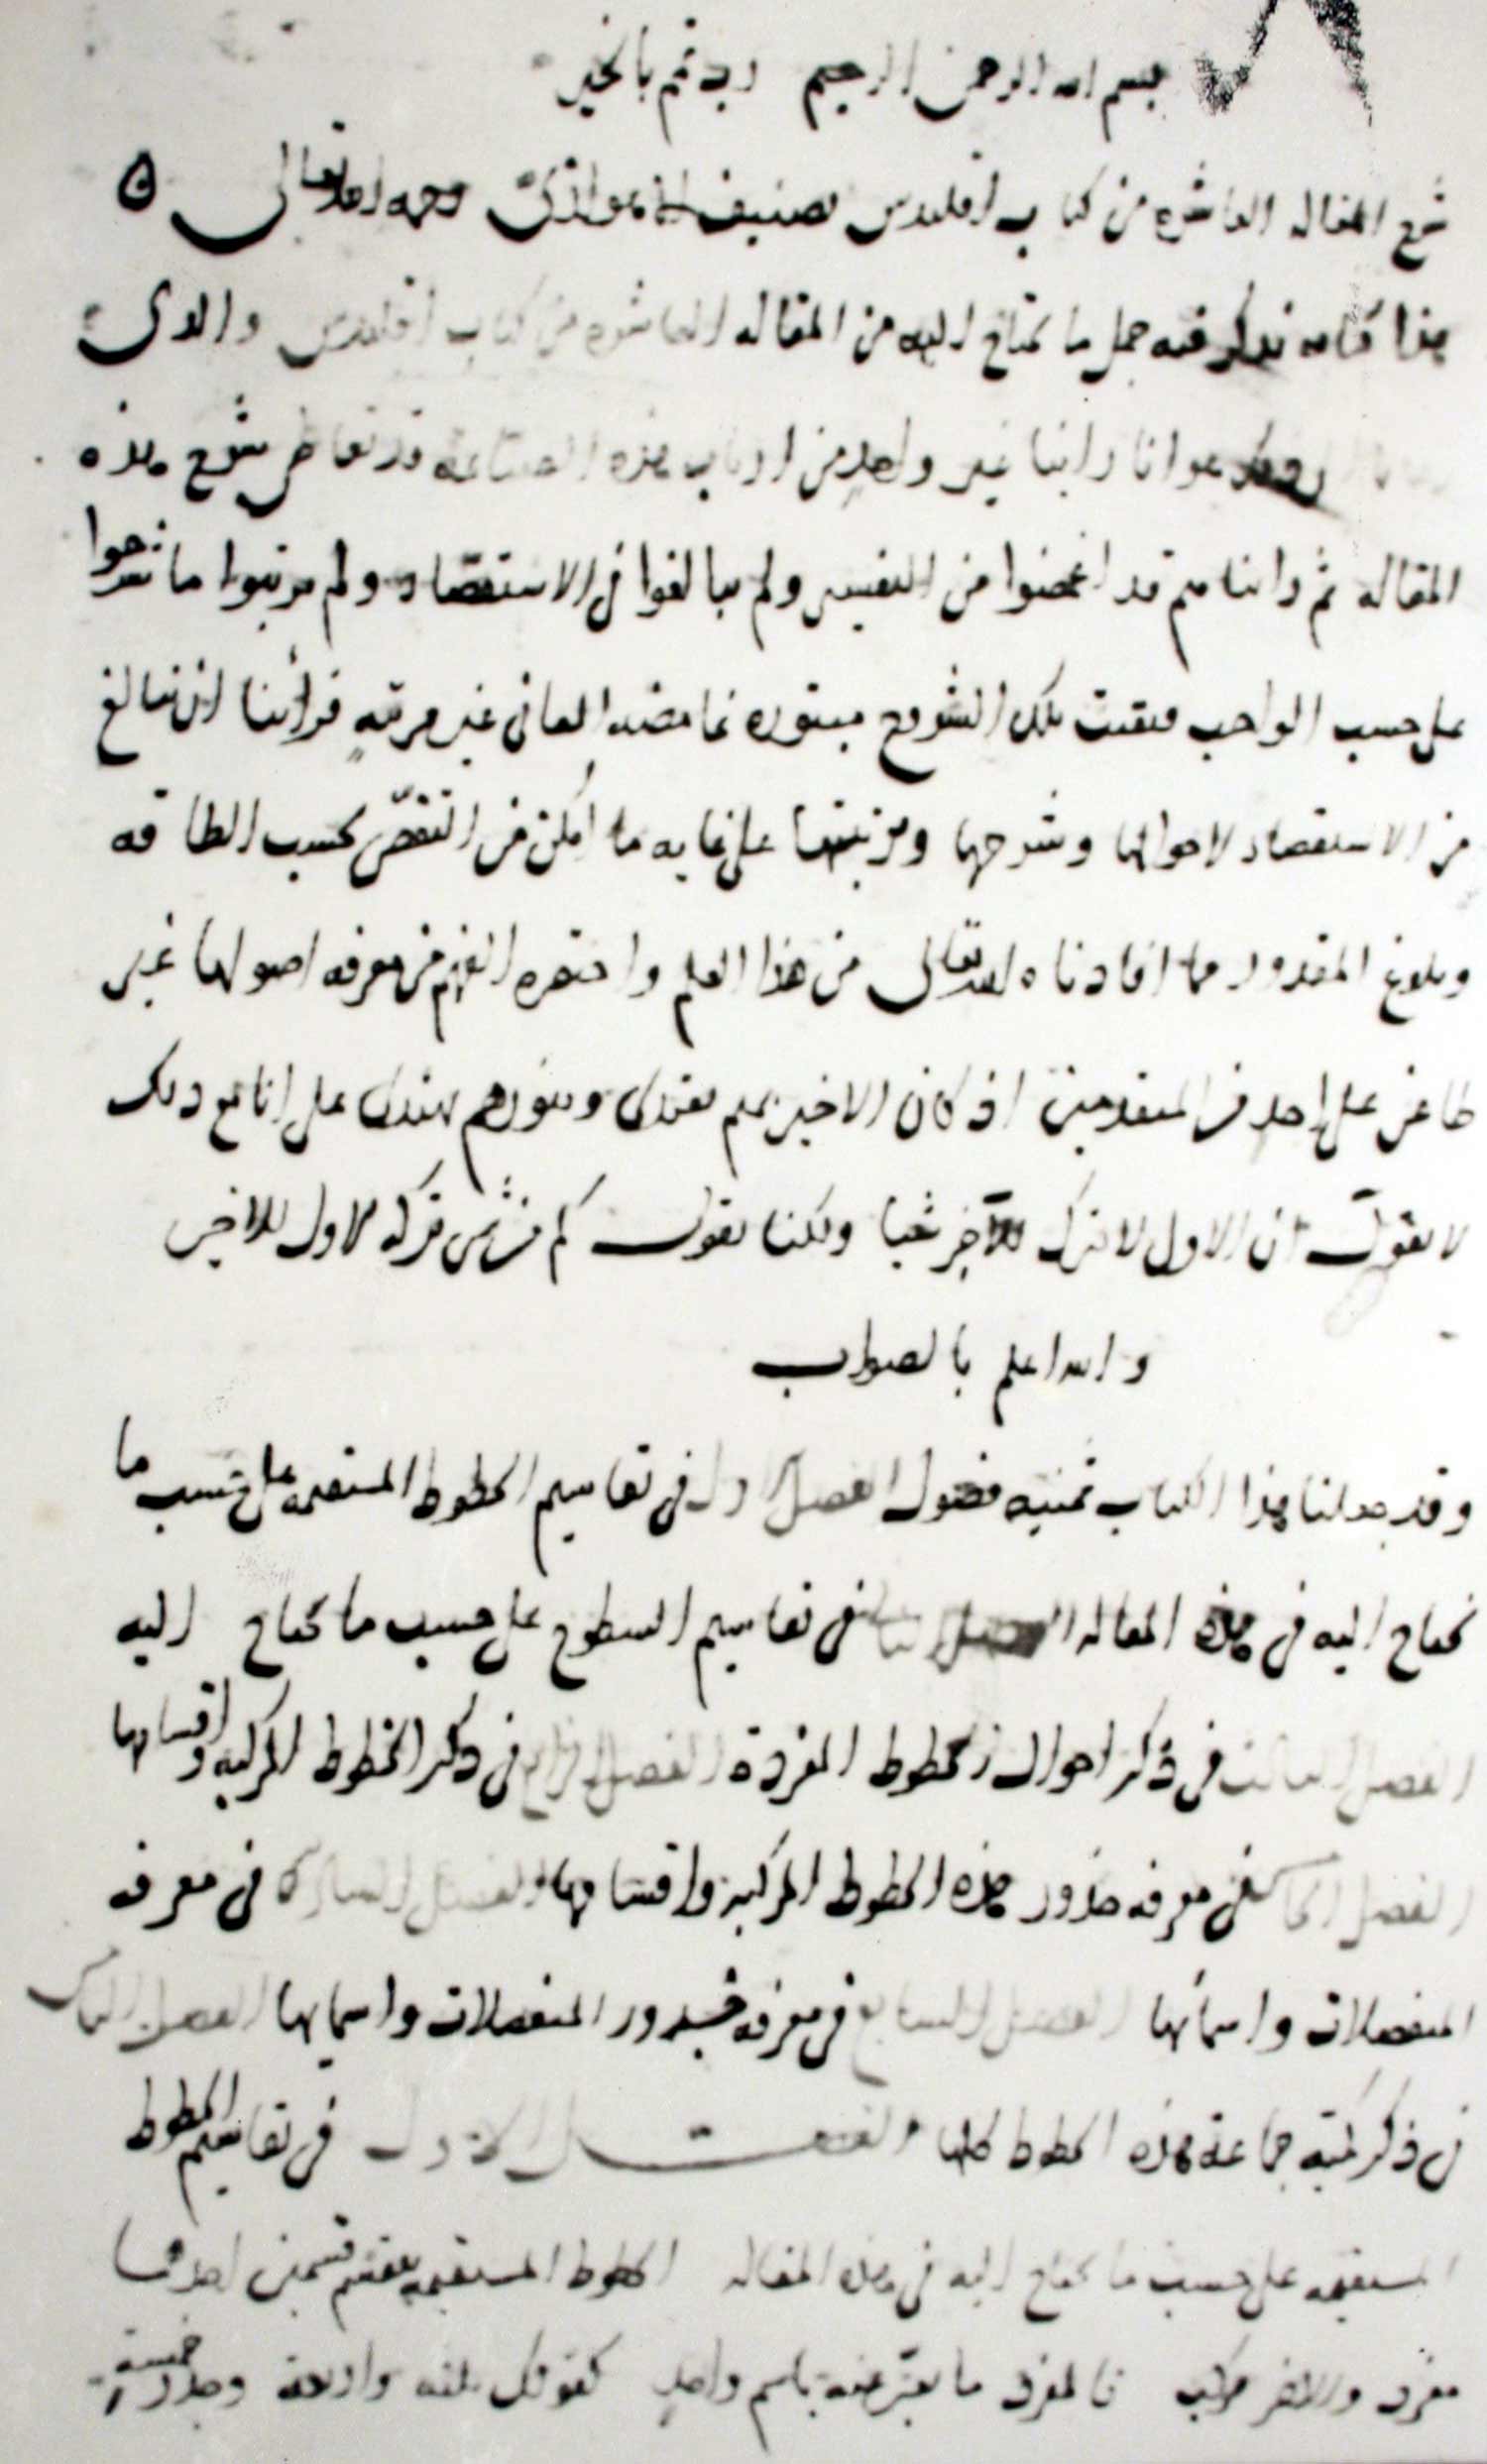 بسم الله الرحمن الرحيم رب تمم بالخير
شرح المقاله العاشره من كتاب اقليدس تصنيف الاهوازى رحمه الله تعالى
هذا كتاب نذكر فيه جمل ما يحتاج اليه من المقاله العاشره من كتاب اقليدس والذى
هو انا راينا غير واحد من ارباب هذه الصناعة قد تعاطى شرح هذه
المقاله ثم راينا هم قد اغمضوا من التفسير ولم يبالغوا فى الاستقصاء ولم يرتبوا ما شرحوا
على حسب الواجب فبقيت تلك الشروح مبتوره غامضه المعانى غير مرتبه فرأينا ان نبالغ
من الاستقصاء لاحوالها وشرحها وترتيبها على غايه ما امكن من التقصّى بحسب الطاقه
وبلوغ المقدور مما افادناه الله تعالى من هذا العلم واحتمره الفهم من معرفه اصولها غير
طاعن على احد من المتقدمين اذ كان الاخير بهم يقتدى وبنورهم يهتدى على انا مع ذلك
لا نقول ان الاول لا يترك للآخر شيا ولكنا نقول كم من شى تركه الاول للاخير
والله اعلم بالصواب
وقد جعلنا هذا الكتاب ثمنيه فصول الفصل الاول فى تقاسيم الخطوط المستقيمه على حسب ما
نحتاج اليه فى هذه المقاله الفصل الثانى فى تقاسيم السطوح على حسب ما نحتاج اليه
الفصل الثالث فى ذكر احوال الخطوط المفردة الفصل الرابع فى ذكر الخطوط المركبه واقسامها
الفصل الخامس فى معرفه جذور هذه الخطوط المركبه واقسامها الفصل السادس فى معرفه
المنفصلات واسمائها الفصل السابع فى معرفه جذور المنفصلات واسمايها الفصل الثامن
فى ذكر كميه جماعة هذه الخطوط كلها الفصل الاول فى تقاسيم الخطوط
المستقيمه على حسب ما نحتاج اليه فى هذه المقاله الخطوط المستقيمه تنقسم قسمين احدهما
مفرد والاخر مركب فالمفرد ما يعبّر عنه باسم واحد كقولك ثلثه واربعة وجذر خمسة